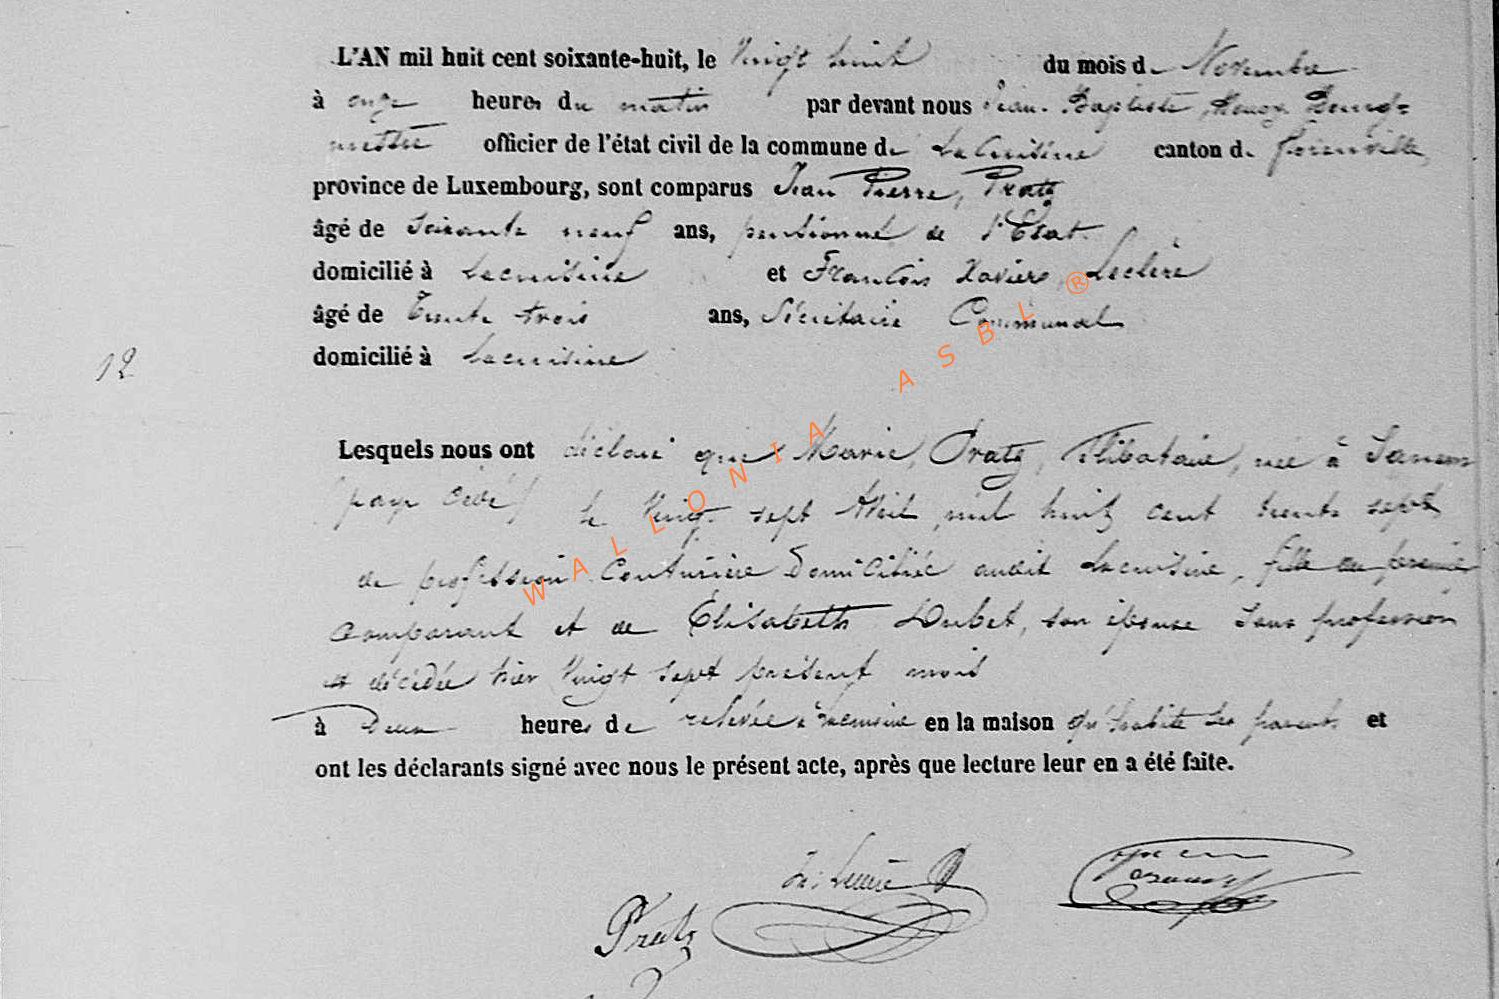 L'AN mil huit cent soixante-huit, le Vingt huit du mois de Novembre
à onze heures du matin par devant nous Jean Baptiste Bourg-
mestre officier de l'état civil de la commune de Lacuisine canton de Florenville
province de Luxembourg, sont comparus Jean Pierre, Pratz
âgé de Soixante neuf ans, pensionné de l'Etat
domicilié à Lacuisine et François Xavier, Leclère
âgé de Trente trois ans, Sécrétaire Communal
12 domicilié à Lacuisine
Lesquels nous ont déclaré que Marie, Pratz, Célibataire, née à Sanem
(pays cédé) le Vingt sept Avril mil huit cent trente sept
de profession Couturière Domiciliée audit Lacuisine, fille du premier
comparant et de Elisabeth son épouse sans profession
est décédée hier Vingt sept présent mois
à Deux heures de relevée en la maison qu'habite ses parents et
ont les déclarants signé avec nous le présent acte, après que lecture leur en a été faite.
Pratz
WALLONIA ASBL ®